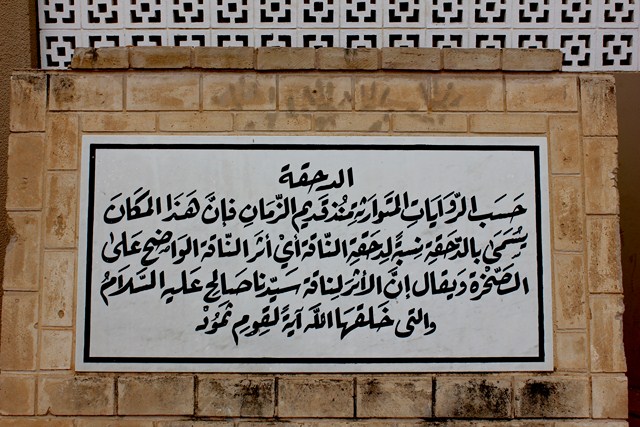 الدحقة
حَسَبَ الرِّوَايَاتِ المتَوارثةِ مُنذُ قَديمِ الزَّمانِ فإنَّ هَذا المكَانَ
يُسَمَّى بالدَّحقَةِ نِسبةً لِدحقةِ الناقَة أيْ أثرَ النَّاقة الواضِح عَلى
الصَّخْرة وَيقال إنَّ الأثرَ لِناقة سَيِّدنا صَالحٍ عَليهِ السَّلامُ
والتي خَلقَهَا اللَّه آيةً لقَومِ ثمَوُدْ